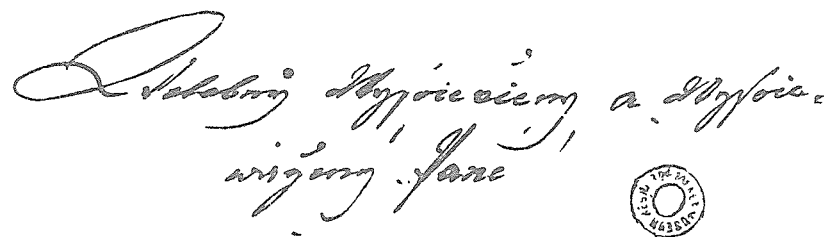 Welebný Wyſoceučený a Wyſoce-
wážený Pane